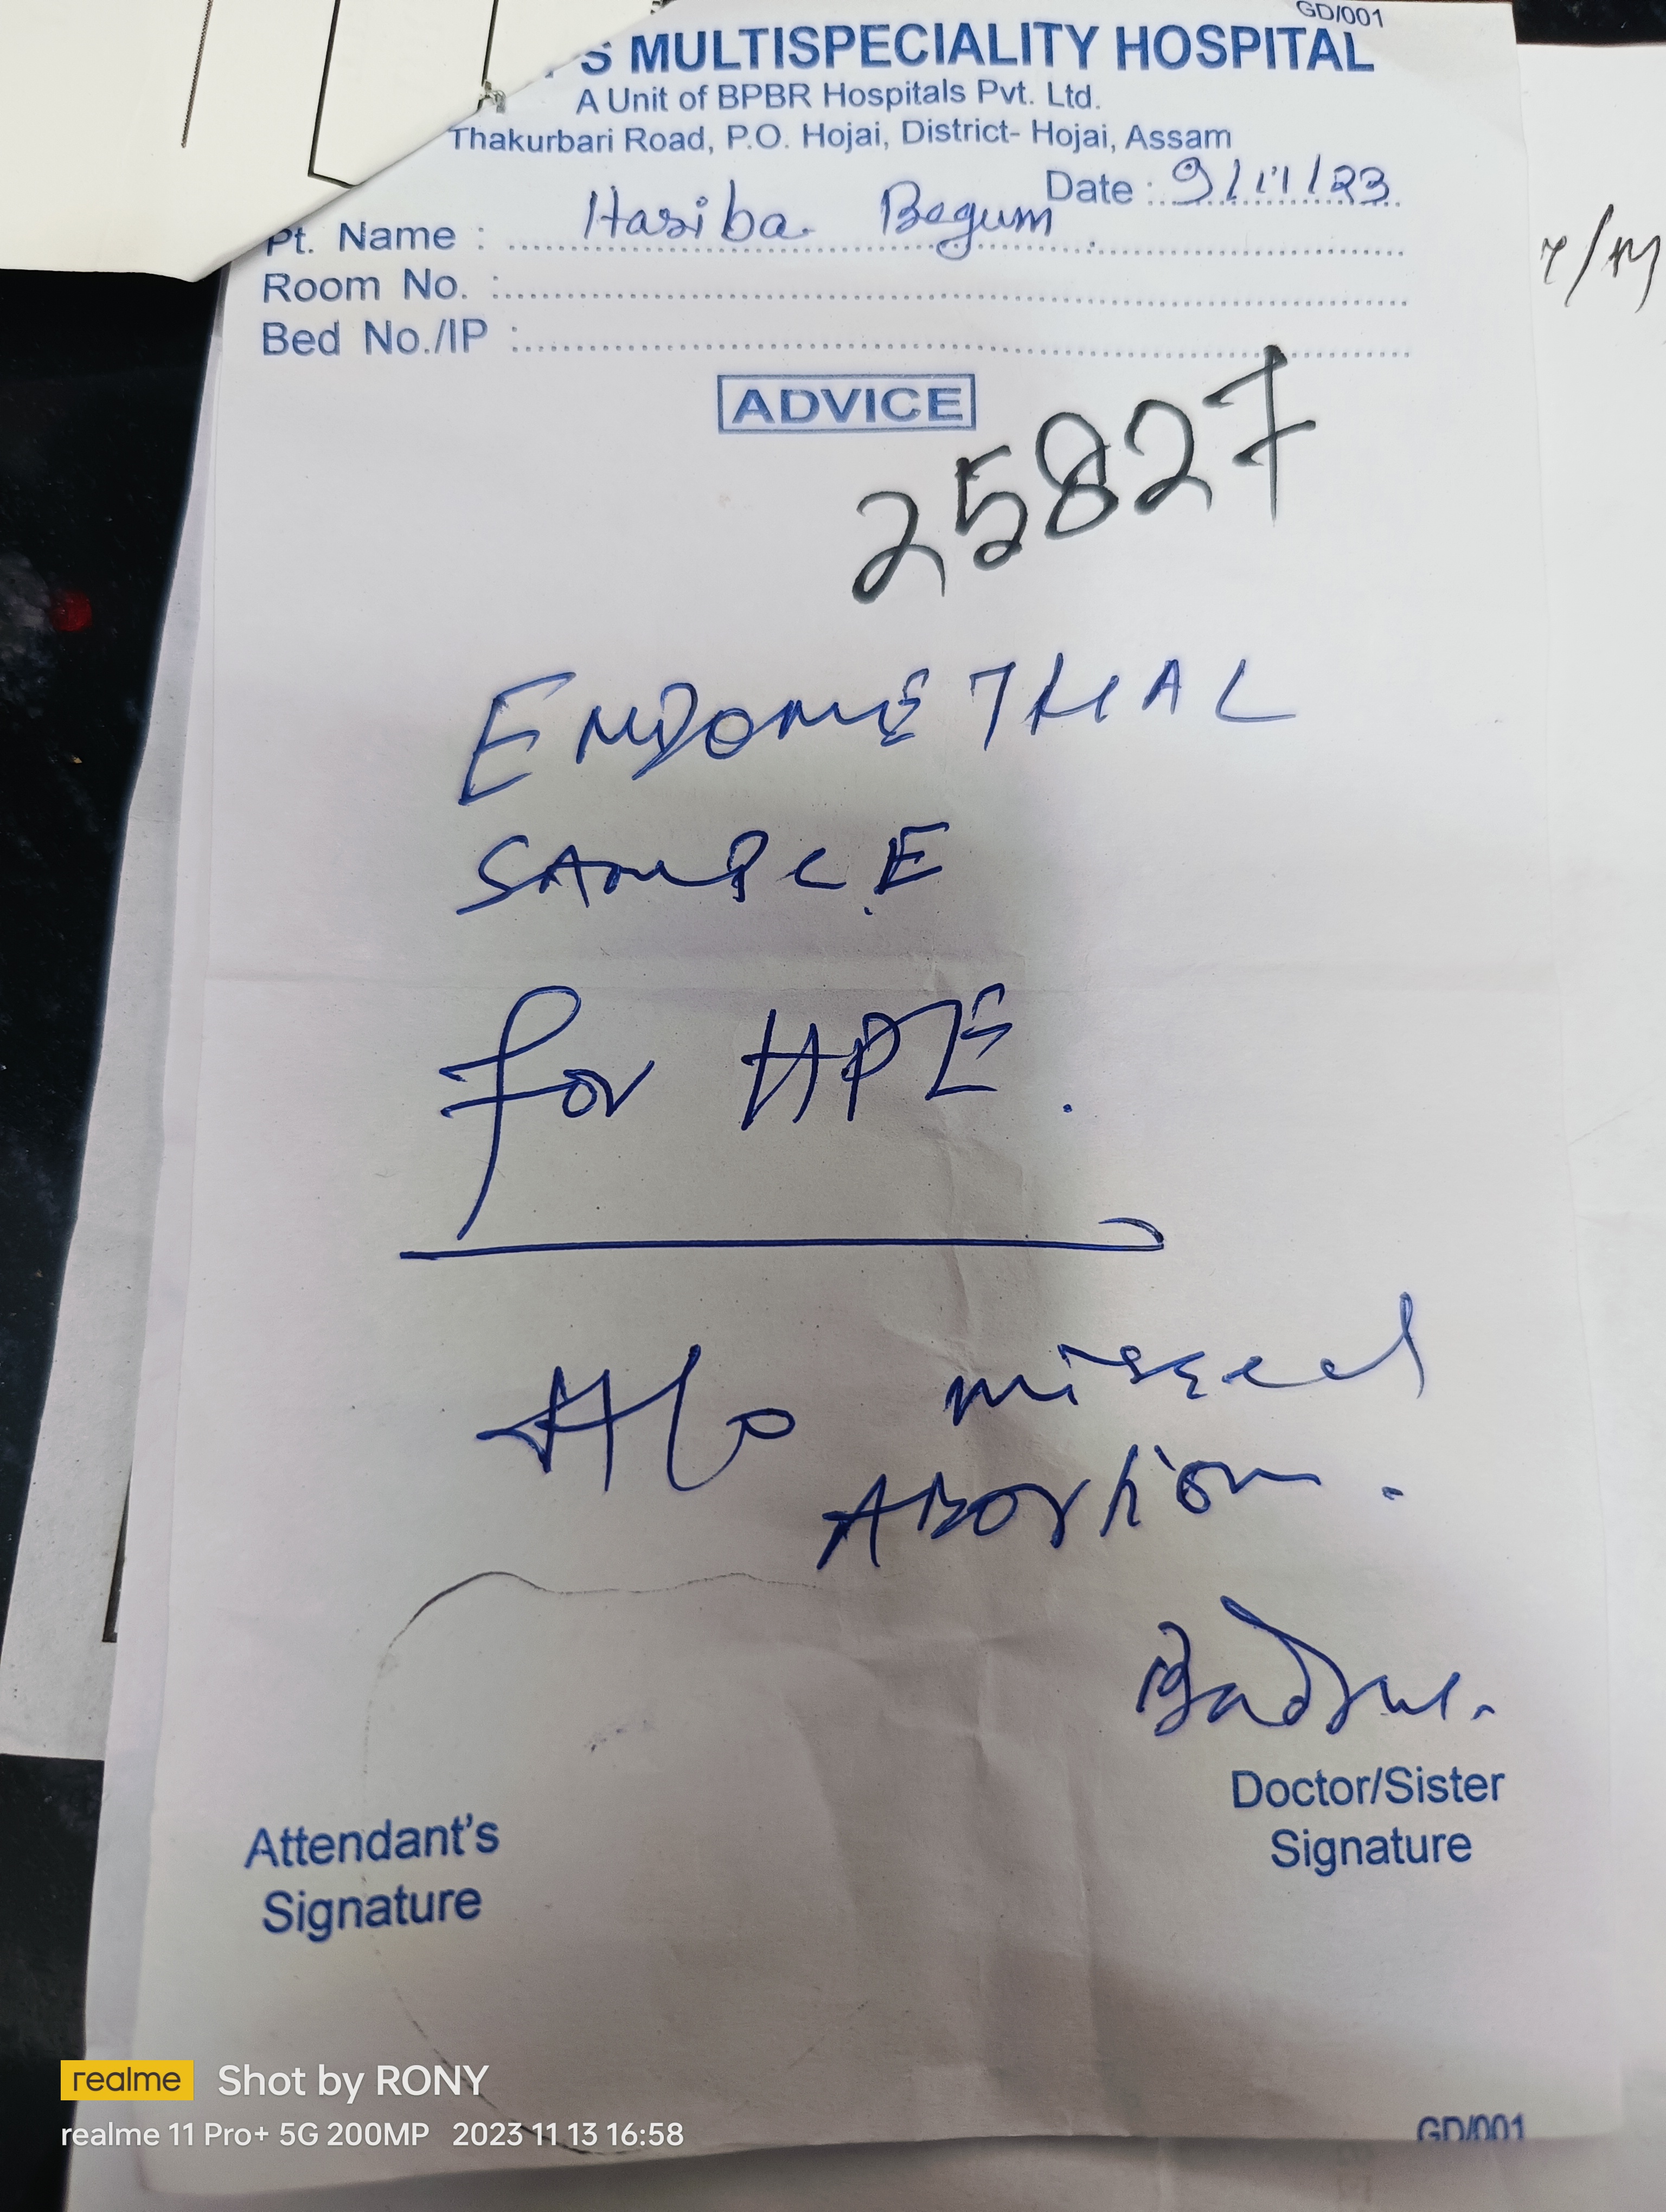 GD/001
'S MULTISPECIALITY HOSPITAL
A Unit of BPBR Hospitals Pvt. Ltd.
Thakurbari Road, P.O. Hojai, District- Hojai, Assam
Date : 9/11/23
Pt. Name : Hasiba Begum
Room No. :
Bed No./IP :
ADVICE
25827
ENDOMETHIAL
SAMPLE
for HPE.
H/o missed
ABortion.
Doctor/Sister
Signature
Attendant's
Signature
realme Shot by RONY
realme 11 Pro+ 5G 200MP 2023 11 13 16:58
GD/001